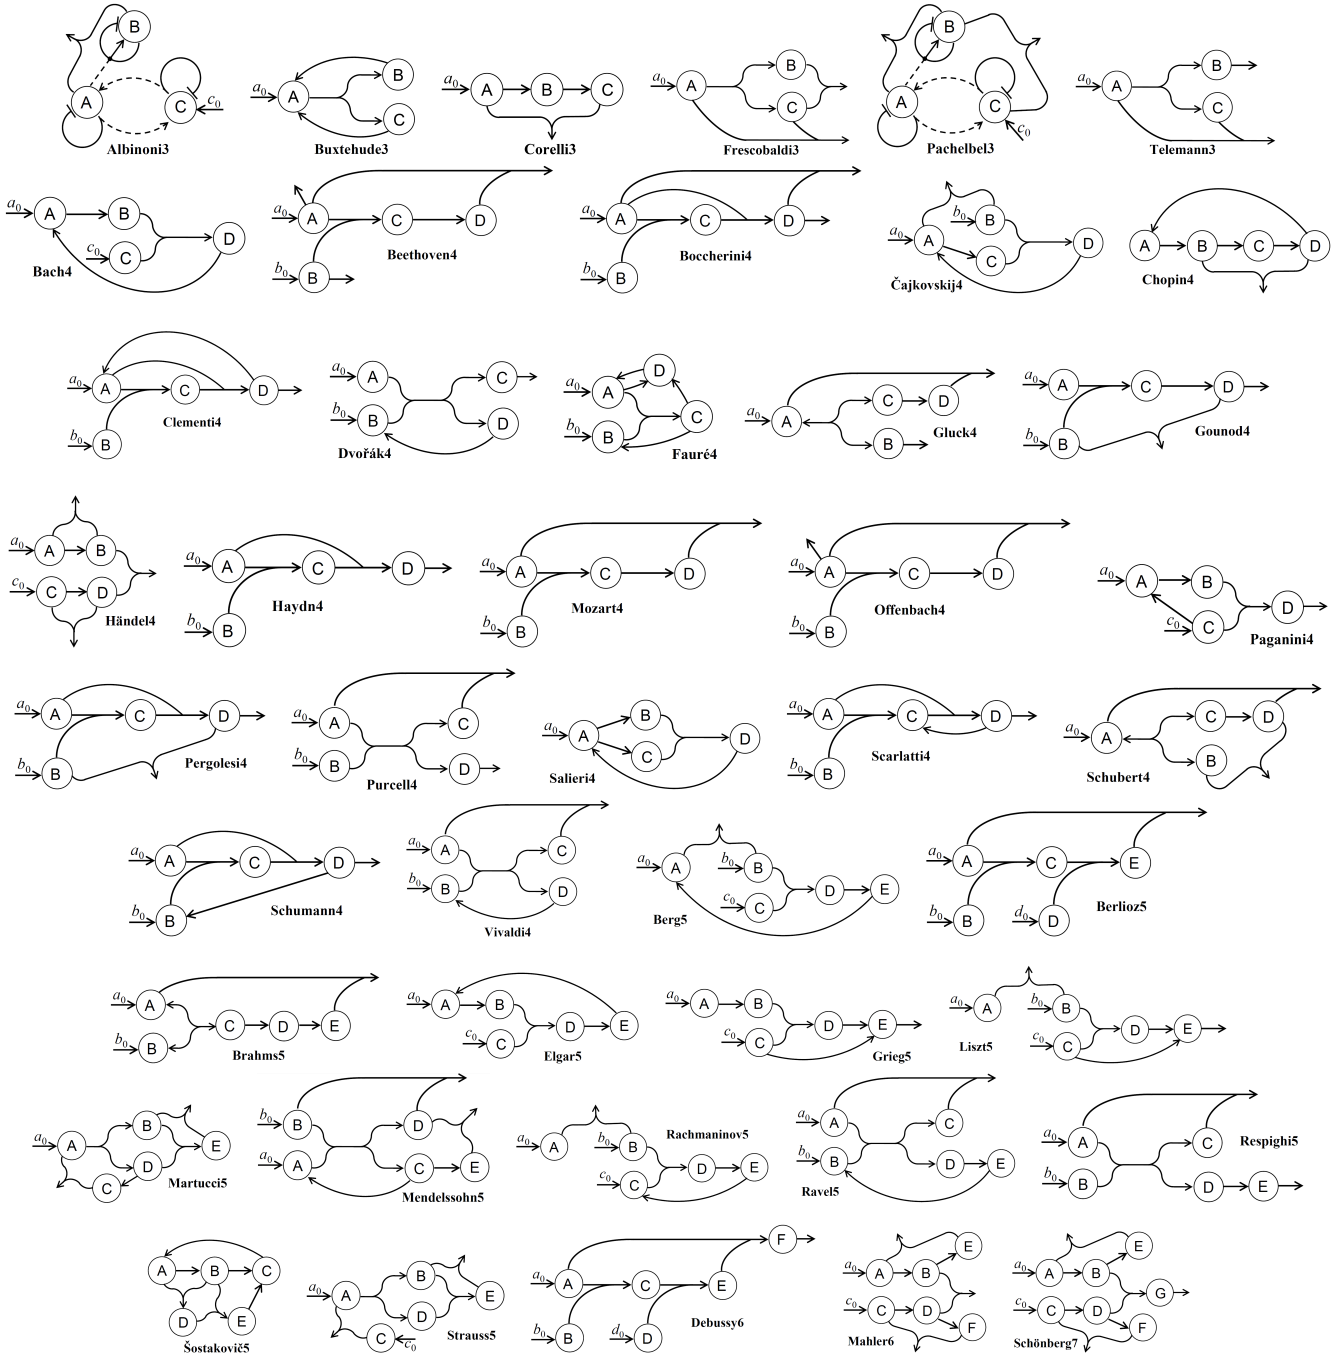 B
A
C
c0
Albinoni3
a0
A
B
C
Buxtehude3
a0
A
B
C
Corelli3
a0
A
B
C
Frescobaldi3
B
A
C
c0
Pachelbel3
a0
A
B
C
Telemann3
a0
A
B
c0
C
D
Bach4
a0
A
C
D
b0
B
Beethoven4
a0
A
C
D
b0
B
Boccherini4
b0
B
a0
A
C
D
Čajkovskij4
A
B
C
D
Chopin4
a0
A
C
D
b0
B
Clementi4
a0
A
C
b0
B
D
Dvořák4
D
a0
A
C
b0
B
Fauré4
a0
A
C
D
B
Gluck4
a0
A
C
D
b0
B
Gounod4
a0
A
B
c0
C
D
Händel4
a0
A
C
D
b0
B
Haydn4
a0
A
C
D
b0
B
Mozart4
a0
A
C
D
b0
B
Offenbach4
a0
A
B
c0
C
D
Paganini4
a0
A
C
D
b0
B
Pergolesi4
a0
A
C
b0
B
D
Purcell4
a0
A
B
C
D
Salieri4
a0
A
C
D
b0
B
Scarlatti4
a0
A
C
D
B
Schubert4
a0
A
C
D
b0
B
Schumann4
a0
A
C
b0
B
D
Vivaldi4
a0
A
b0
B
c0
C
D
E
Berg5
a0
A
C
E
b0
B
d0
D
Berlioz5
a0
A
C
D
E
b0
B
Brahms5
a0
A
B
c0
C
D
E
Elgar5
a0
A
B
c0
C
D
E
Grieg5
a0
A
b0
B
c0
C
D
E
Liszt5
a0
A
B
D
C
E
Martucci5
b0
B
D
a0
A
C
E
Mendelssohn5
a0
A
b0
B
c0
C
D
E
Rachmaninov5
a0
A
C
b0
B
D
E
Ravel5
a0
A
C
b0
B
D
E
Respighi5
A
B
C
D
E
Šostakovič5
a0
A
B
D
E
C
c0
Strauss5
a0
A
C
E
F
b0
B
d0
D
Debussy6
E
a0
A
B
c0
C
D
F
Mahler6
E
a0
A
B
G
c0
C
D
F
Schönberg7